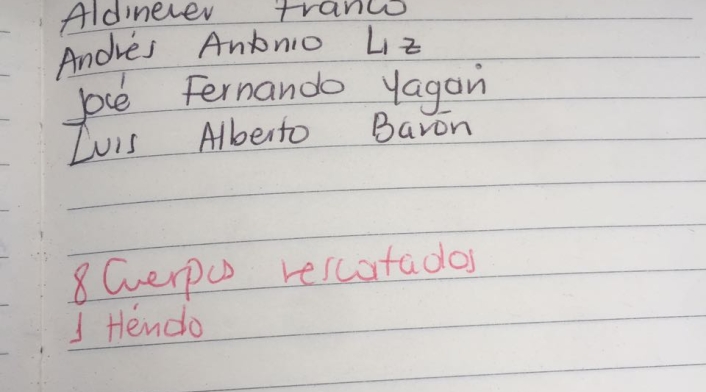 Aldinever Franco
Andrés Antonio Liz
José Fernando Yagari
Luis Alberto Barón
8 Cuerpos rescatados
1 Herido